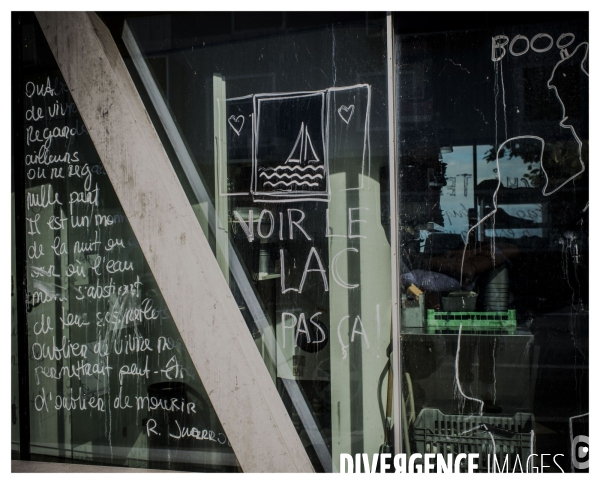 de vivre
Regarder
ailleurs
ou
nulle part
Il est un
de la nuit ou
où l'eau
s'abstient
de
Oublier de vivre
permettrait peut-être
d'oublier de mourir
R. Juarroz
VOIR LE
LAC
PAS ÇA!
BOOO
DIVERGENCE IMAGES